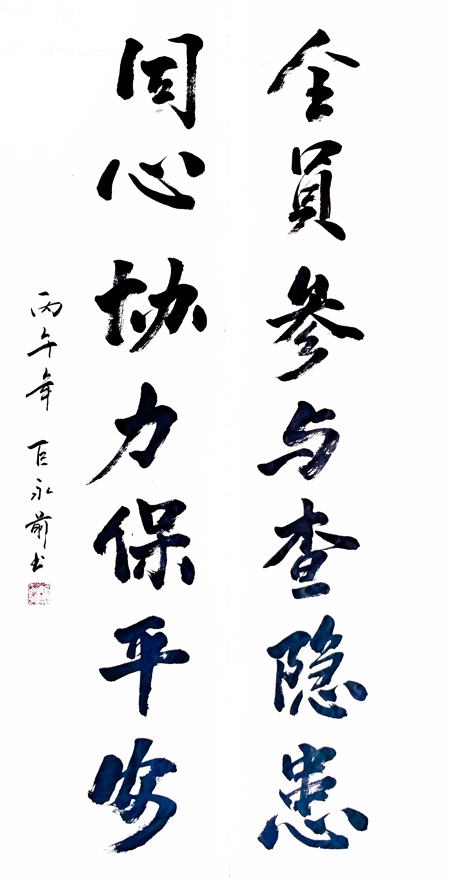 全員参与查隐患
同心协力保平安
丙午年 巨永前书